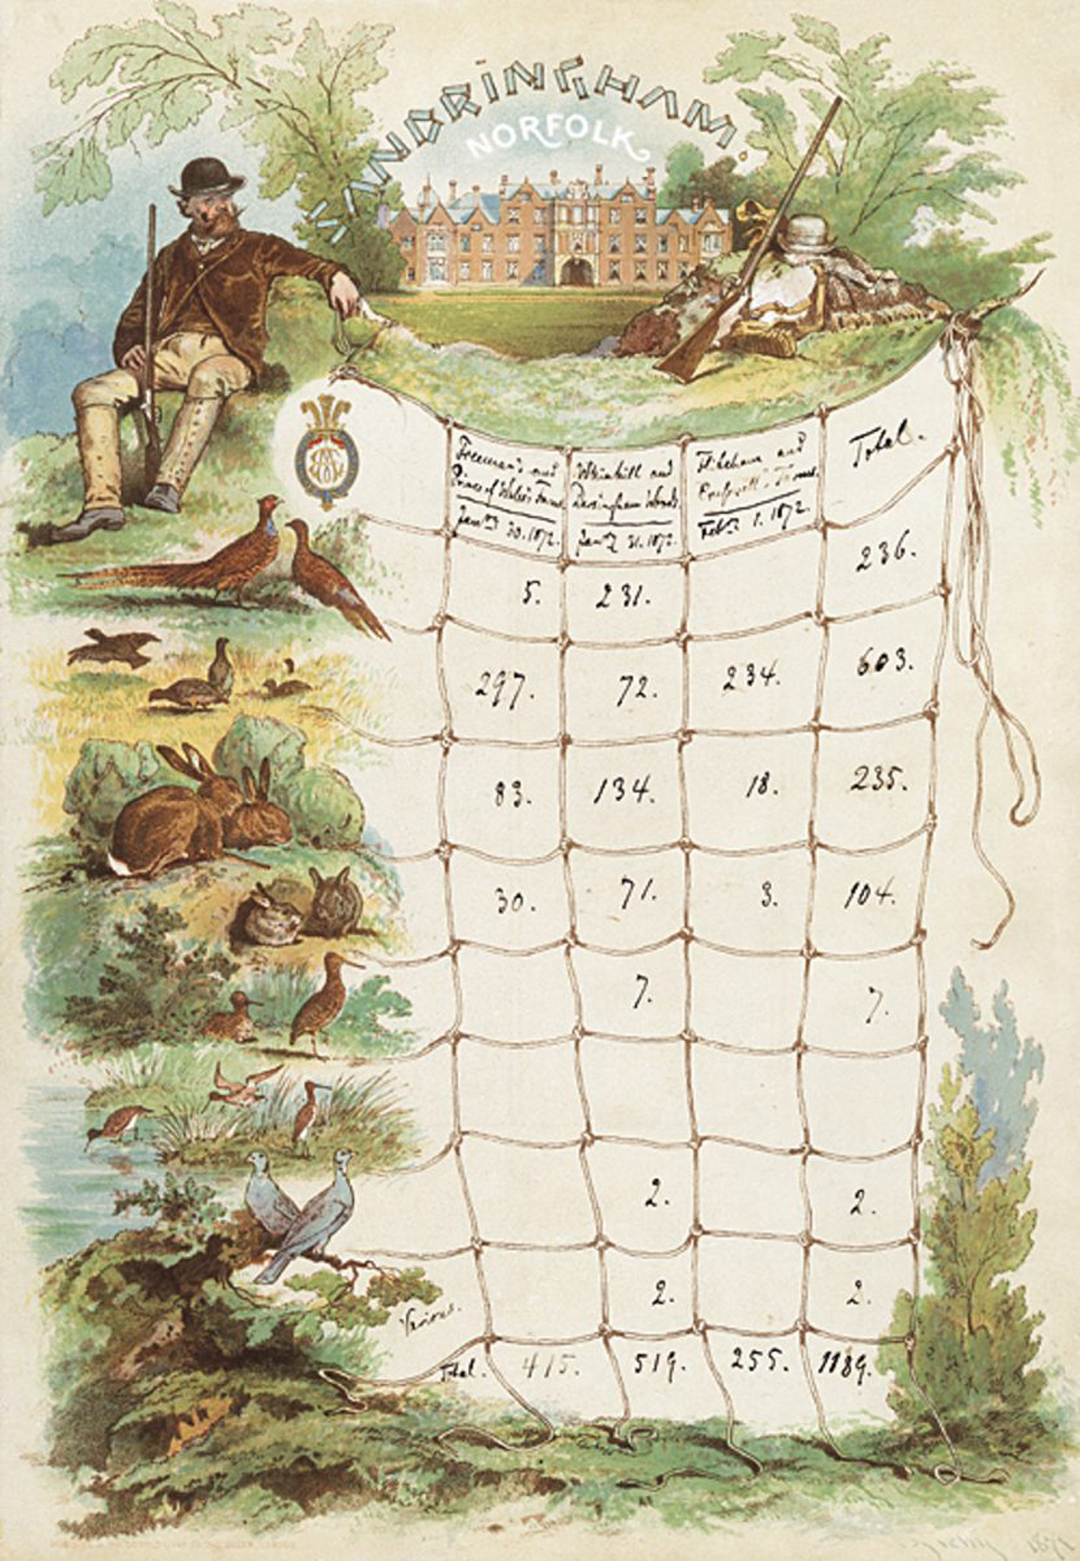 SANDRINGHAM.
NORFOLK
Freeman's and
Prince of Wales's Farms
Jany 30. 1872.
Whinhill and
Dersingham Woods
Jany 31. 1872.
and
Feby 1. 1872.
Total.
5. 231. 236.
297. 72. 234. 603.
83. 134. 18. 235.
30. 71. 3. 104.
7. 7.
2. 2.
Various. 2. 2.
Total. 415. 519. 255. 1189.